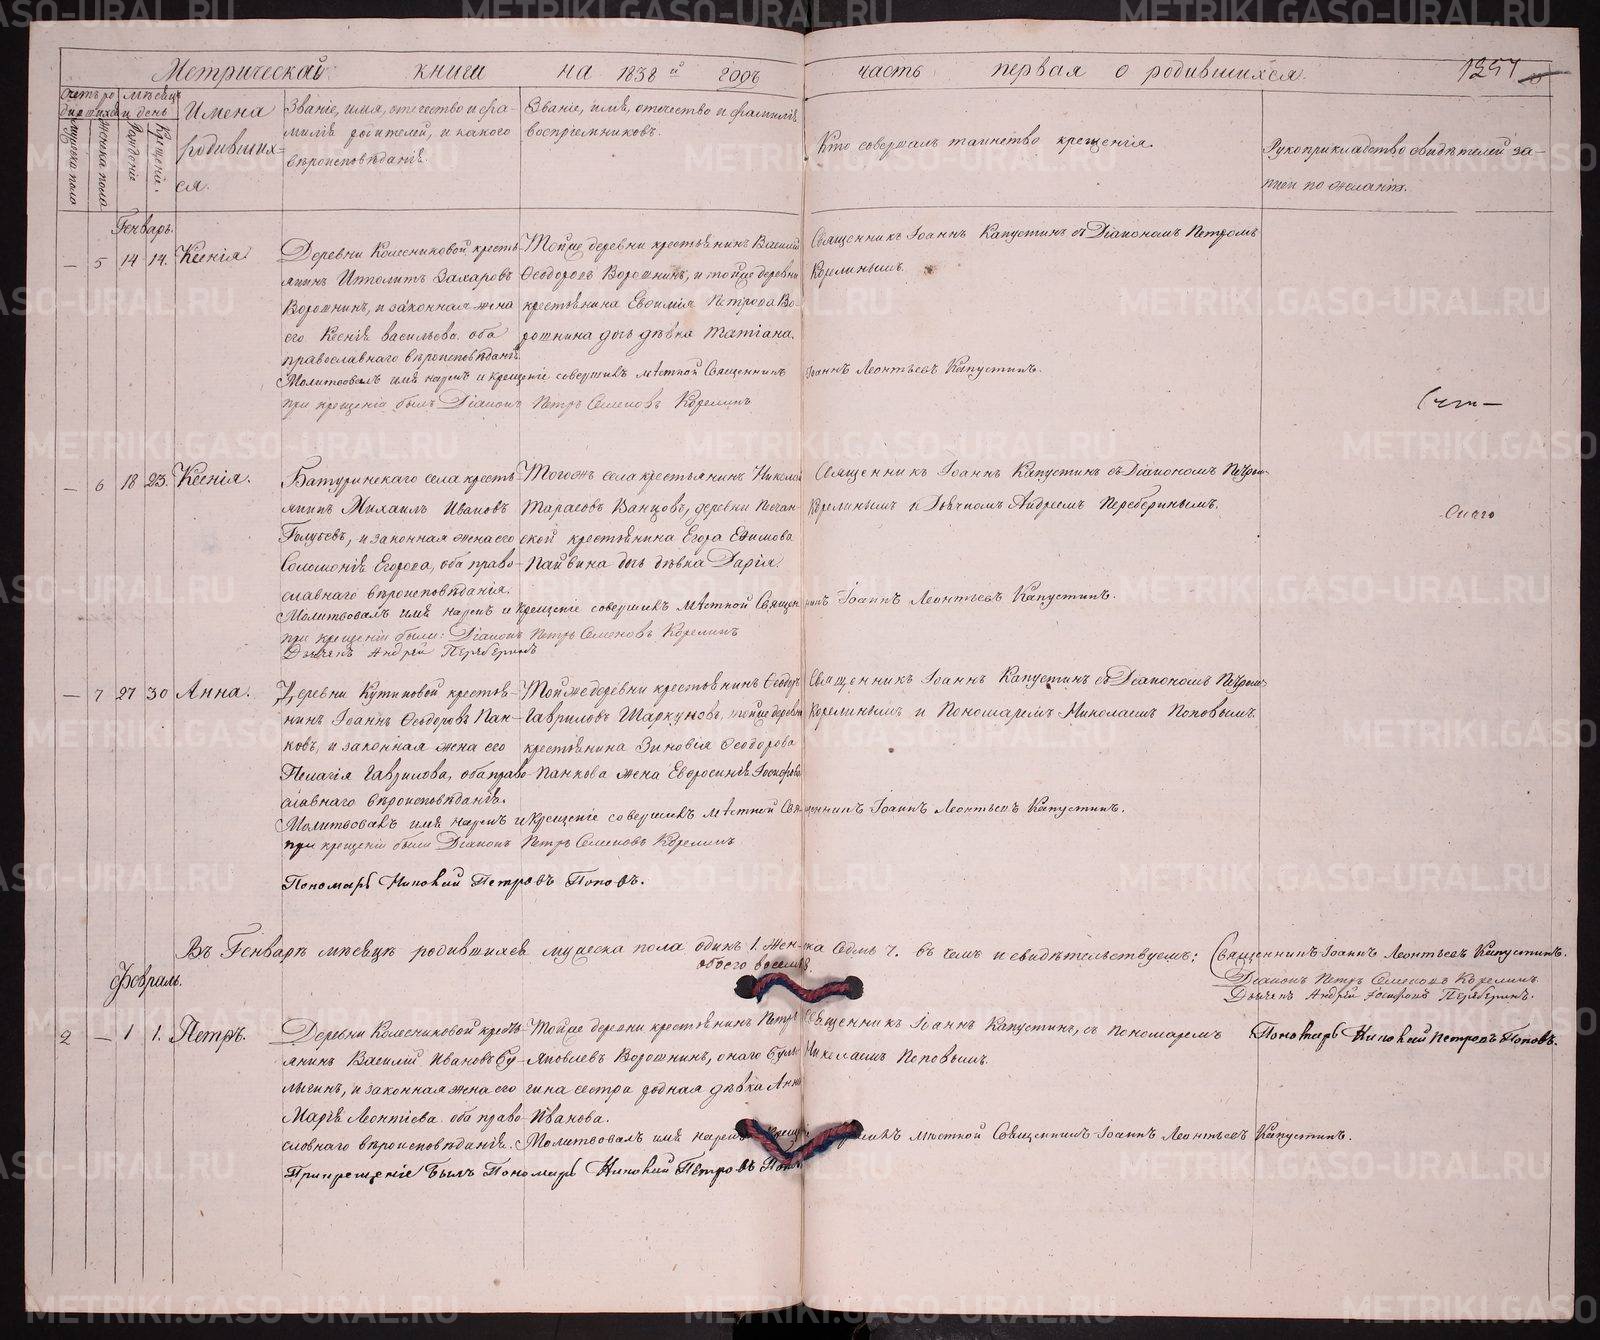 Метрической книги на 1838й годъ часть первая о родившихся. 1251
Счетъ родившихся
Мужеска пола
Женска пола
Мѣсяцъ и день
Рожденіе
Крещеніе.
Имена
родивших=
ся.
Званіе, имя, отечество и фа-
милія родителей, и какого
вѣроисповѣданія.
Званіе, имя, отечество и фамилія
воспріемниковъ.
Кто совершалъ таинство крещенія.
Рукоприкладство свидѣтелей за-
писи по желанію.
Генварь.
— 5 14 14. Ксенія
Деревни Колесниковой кресть-
янинъ Ипполитъ Захаровъ
Ворошнинъ, и законная жена
его Ксенія Васильева оба
православнаго вѣроисповѣданія.
Тойже деревни крестьянинъ Василій
Ѳеодоровъ Ворошнинъ, и тойже деревни
крестьянина Евѳимія Петрова Во-
рошнина дочь дѣвка Татіана.
Священникъ Іоаннъ Капустинъ съ Діакономъ Петромъ
Корелинымъ.
Молитвовалъ имя нарекъ и крещеніе совершилъ мѣстной Священникъ Іоаннъ Леонтьевъ Капустинъ.
при крещеніи былъ Діаконъ Петръ Семеновъ Корелинъ
— 6 18 23. Ксенія.
Батуринскаго села кресть-
янинъ Михаилъ Ивановъ
Голубевъ, и законная жена его
Соломонія Егорова, оба право-
славнаго вѣроисповѣданія.
Тогожъ села крестьянинъ Николай
Тарасовъ Ванцовъ, деревни Песчан-
ской крестьянина Егора Ефимова
Пайвина дочь дѣвка Дарія
Священникъ Іоаннъ Капустинъ съ Діакономъ Петромъ
Корелинымъ и Дьячкомъ Андреемъ Переберинымъ.
Молитвовалъ имя нарекъ и крещеніе совершилъ мѣстной Священникъ Іоаннъ Леонтьевъ Капустинъ.
при крещеніи были: Діаконъ Петръ Семеновъ Корелинъ
Дьячекъ Андрей Переберинъ
— 7 27 30 Анна.
Деревни Кутиковой крестья-
нинъ Іоаннъ Ѳеодоровъ Пан-
ковъ, и законная жена его
Пелагія Гаврилова, оба право-
славнаго вѣроисповѣданія.
Тойже деревни крестьянинъ Ѳеодоръ
Гавриловъ Шаркуновъ, тойже деревни
крестьянина Зиновія Ѳеодорова
Панкова жена Евфросинія Іосифова
Священникъ Іоаннъ Капустинъ съ Діакономъ Петромъ
Корелинымъ и Пономаремъ Николаемъ Поповымъ.
Молитвовалъ имя нарекъ и крещеніе совершилъ мѣстной Священникъ Іоаннъ Леонтьевъ Капустинъ.
при крещеніи были Діаконъ Петръ Семеновъ Корелинъ
Пономарь Николай Петровъ Поповъ.
Въ Генварѣ мѣсяцѣ родившихся мужеска пола одинъ 1. женска седмь 7. въ чемъ и свидѣтельствуемъ: Священникъ Іоаннъ Леонтьевъ Капустинъ.
обоего восемь 8.
Діаконъ Петръ Семеновъ Корелинъ
Дьячекъ Андрей Іосифовъ Переберинъ.
Пономарь Николай Петровъ Поповъ.
Февраль.
2 — 1 1. Петръ.
Деревни Колесниковой кресть-
янинъ Василій Ивановъ Бу-
лыгинъ, и законная жена его
Марія Леонтіева оба право-
словнаго вѣроисповѣданія.
Тойже деревни крестьянинъ Петръ
Яковлевъ Ворошнинъ, онаго Булы-
гина сестра родная дѣвка Анна
Иванова.
Священникъ Іоаннъ Капустинъ, съ пономаремъ
Николаемъ Поповымъ.
Молитвовалъ имя нарекъ мѣстной Священникъ Іоаннъ Леонтьевъ Капустинъ.
При крещеніе былъ Пономарь Николай Петровъ
METRIKI.GASO-URAL.RU